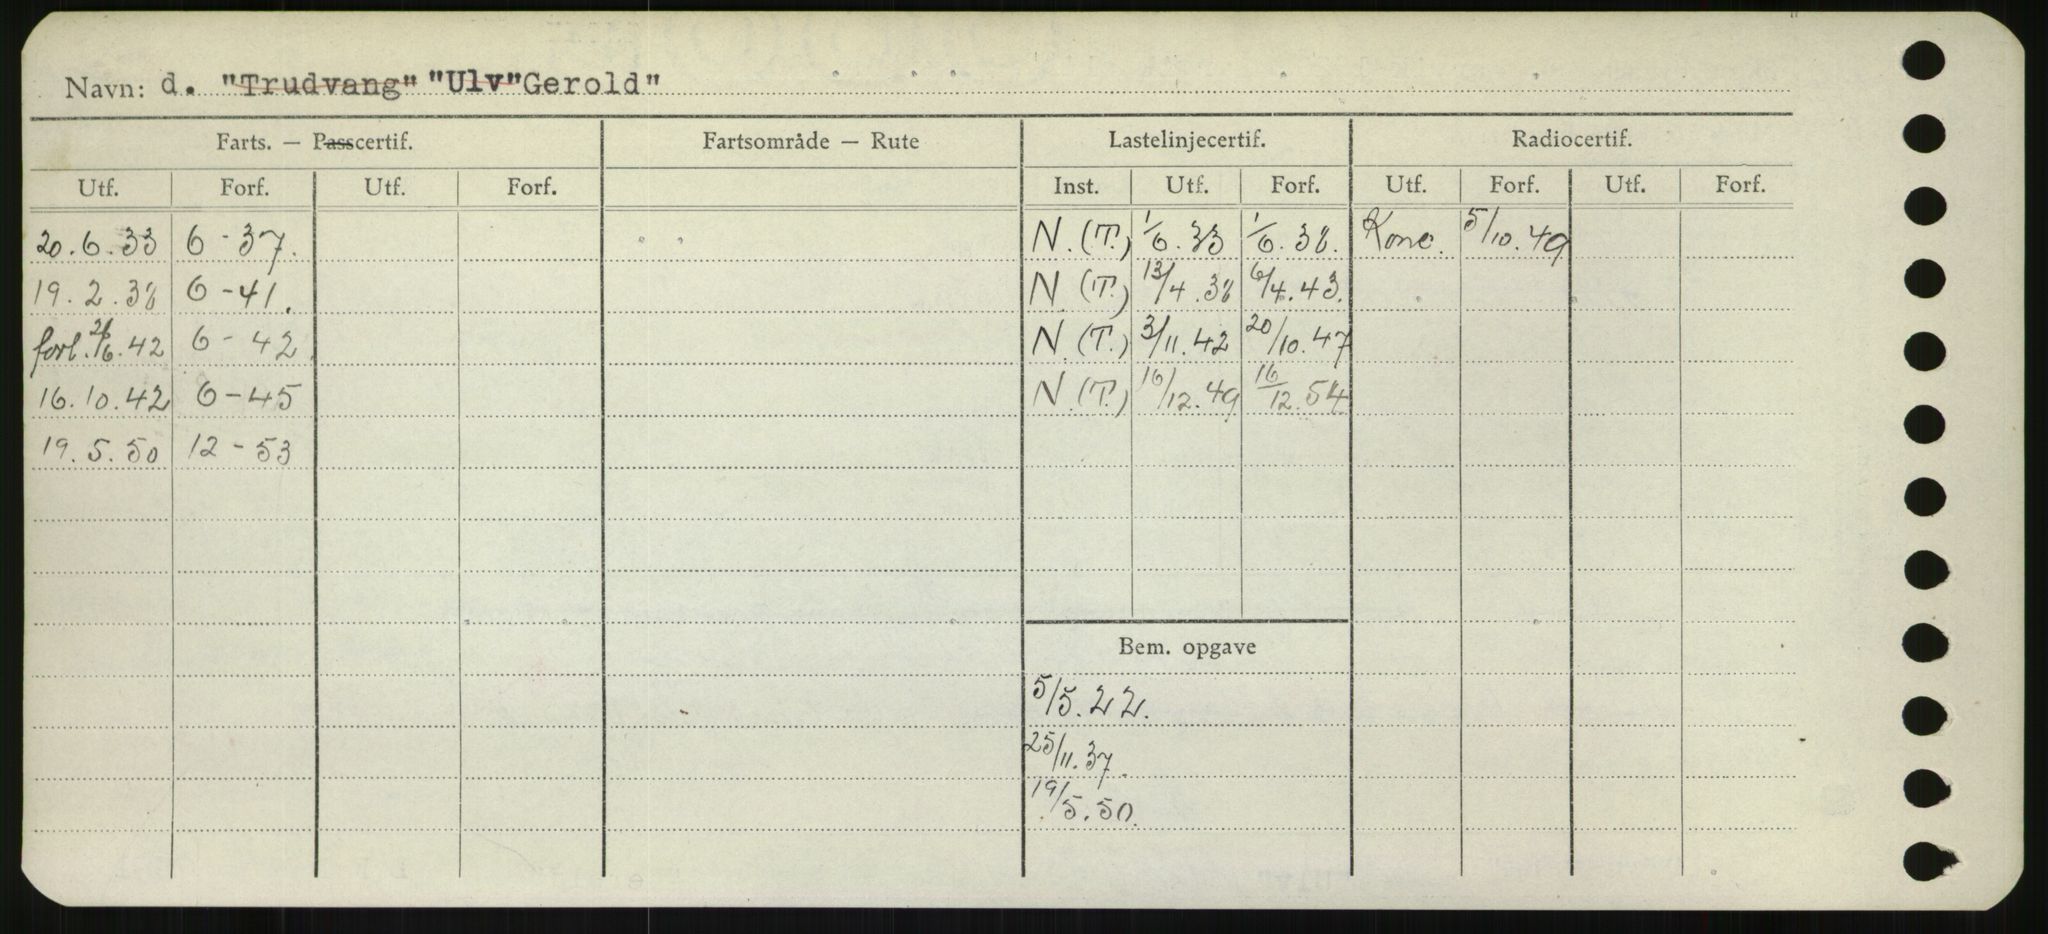 Navn: d. "Trudvang" "Ulv" Gerold"
Farts. — Passcertif. Fartsområde — Rute Lastelinjecertif. Radiocertif.
Utf. Forf. Utf. Forf. Inst. Utf. Forf. Utf. Forf. Utf. Forf.
20.6.33 6-37. N.(T.) 1/6.33 1/6.38. Konc. 5/10.49
19.2.38 6-41. N (T.) 13/4.38 6/4.43.
forl. 26/6.42 6-42. N.(T.) 3/11.42 20/10.47
16.10.42 6-45 N.(T.) 16/12.49 16/12.54
19.5.50 12-53
Bem. opgave
5/5.22.
25/11.37.
19/5.50.